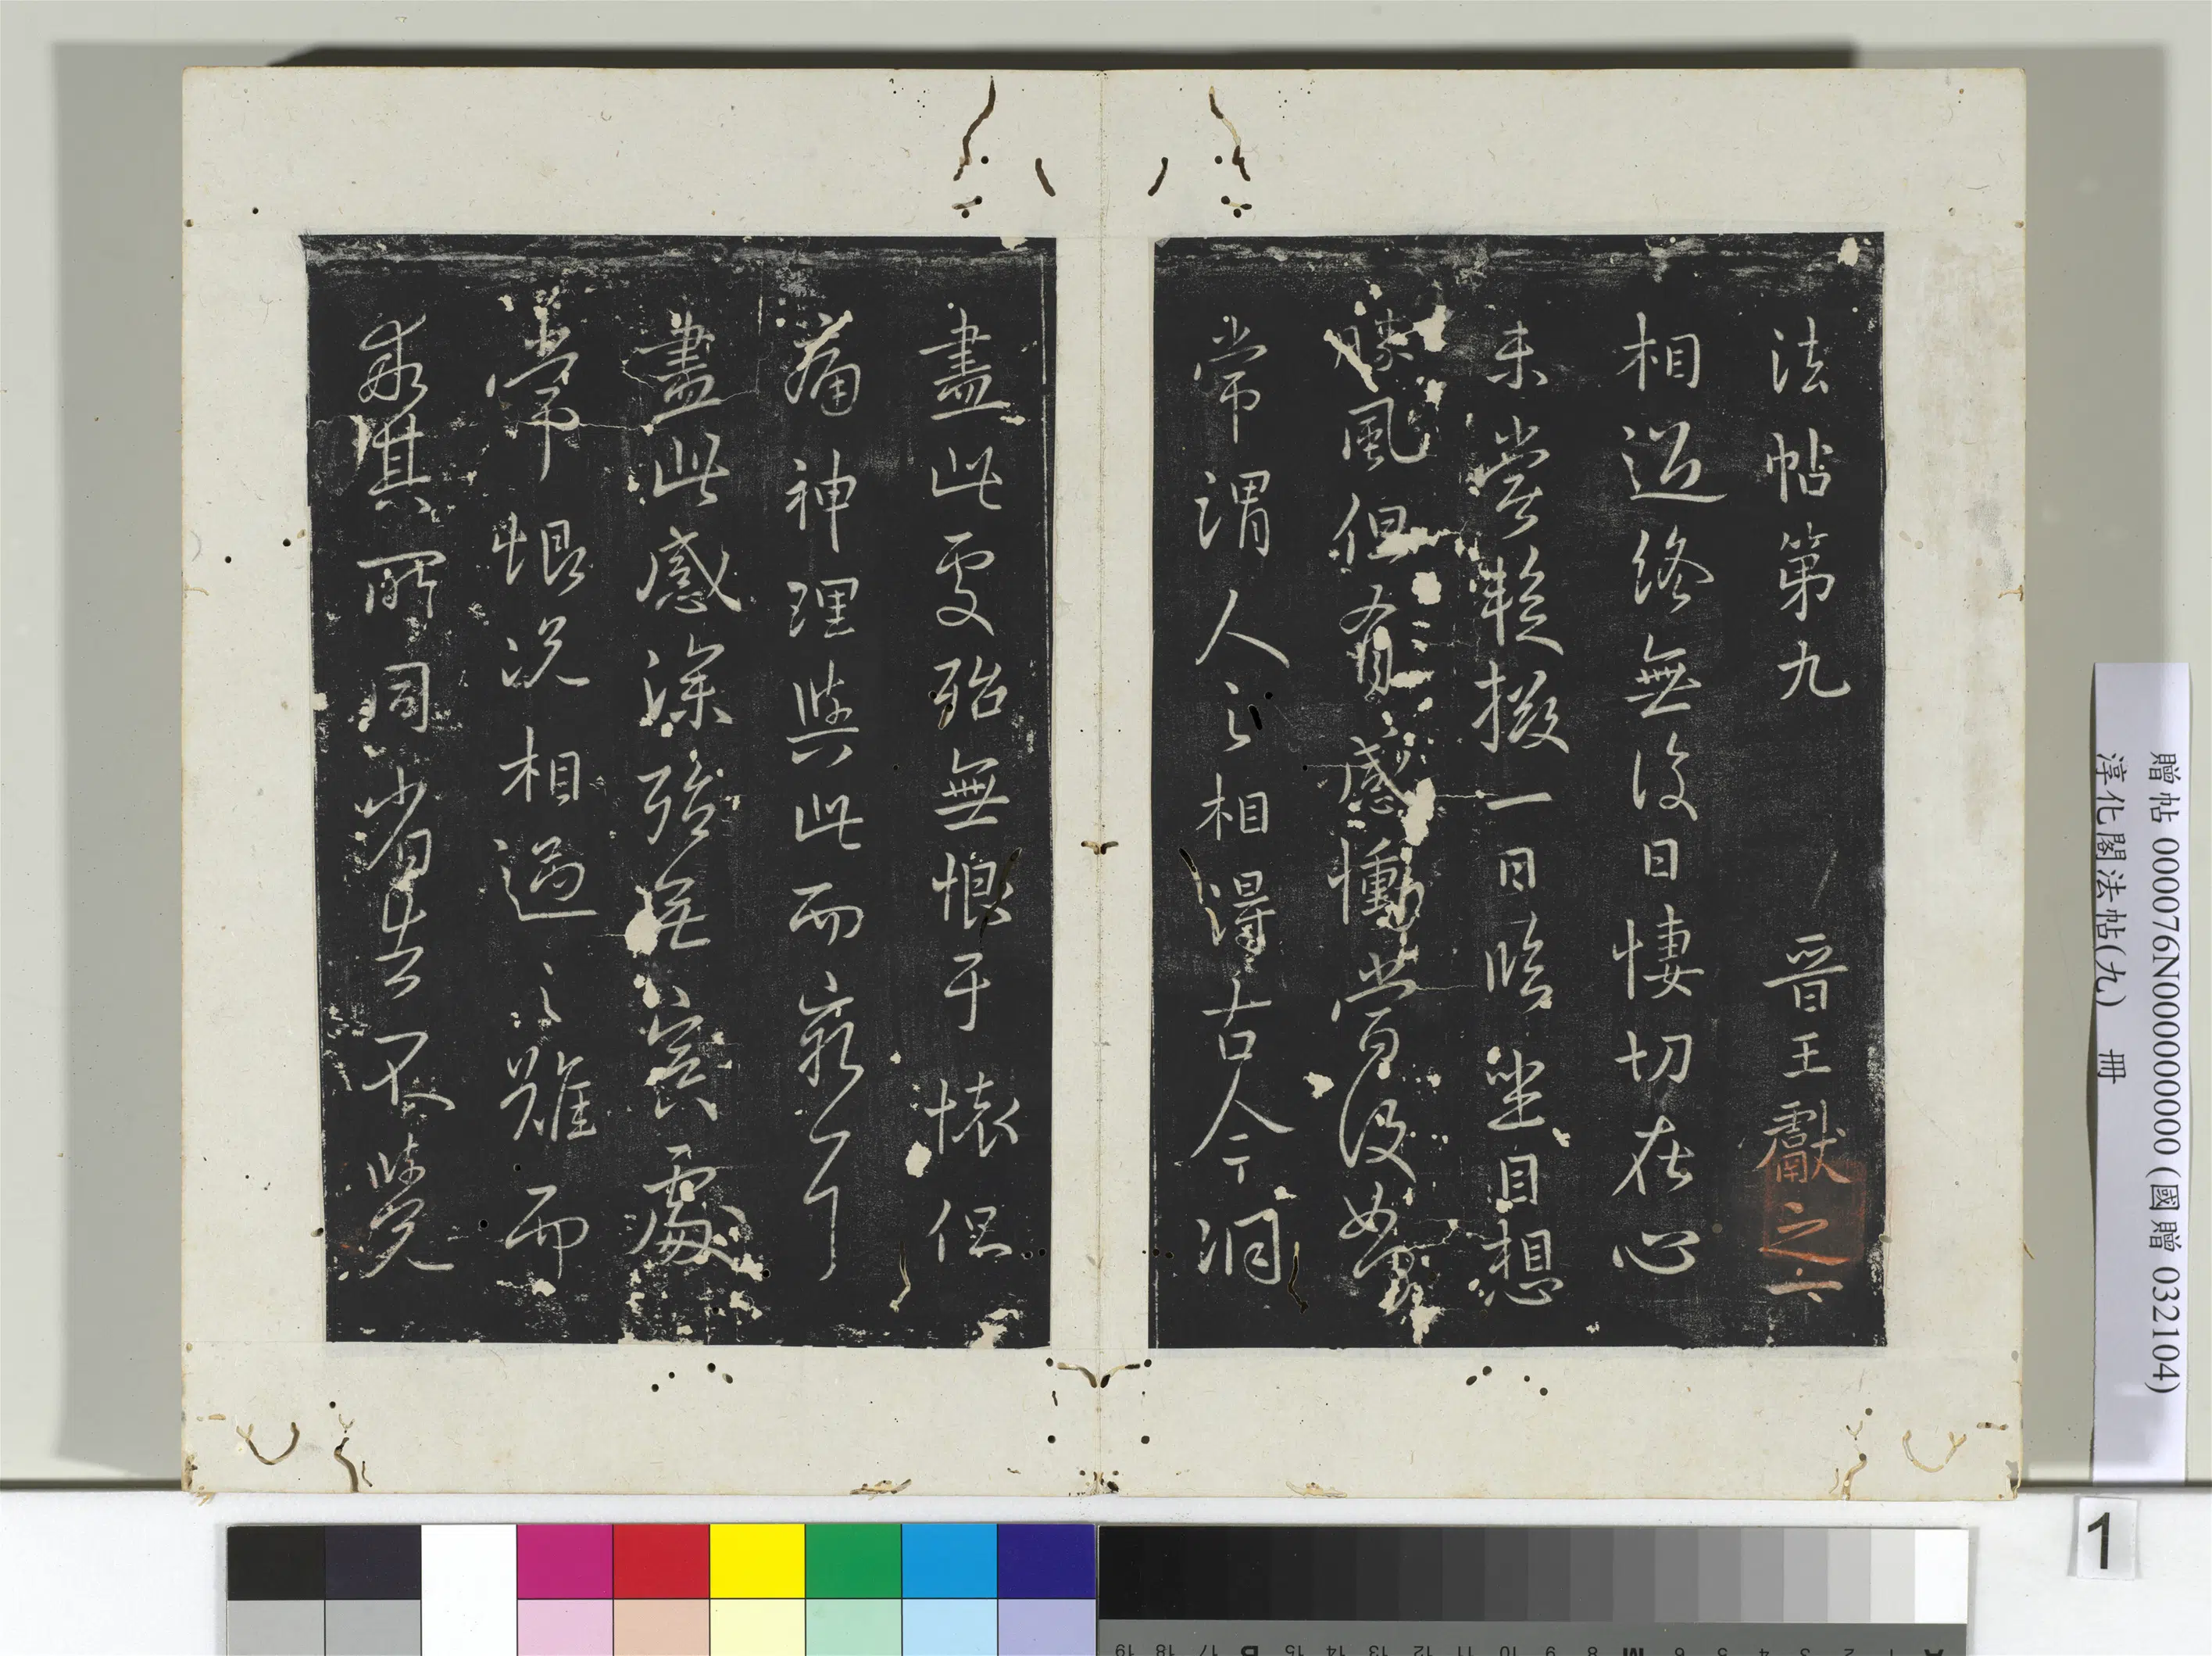 法帖第九 晉王獻之六
相過終無復日悽切在心
未嘗暫掇一日臨坐目想
勝風但有感慟當復如何
常謂人之相得古今洞
盡此處殆無恨于懷但
痛神理與此而窮耳
盡此感深殆無冥處
常恨況相遇之難而
乖其所同省告不覺
贈帖 000076N000000000 (國贈 032104)
淳化閣法帖(九) 冊
1